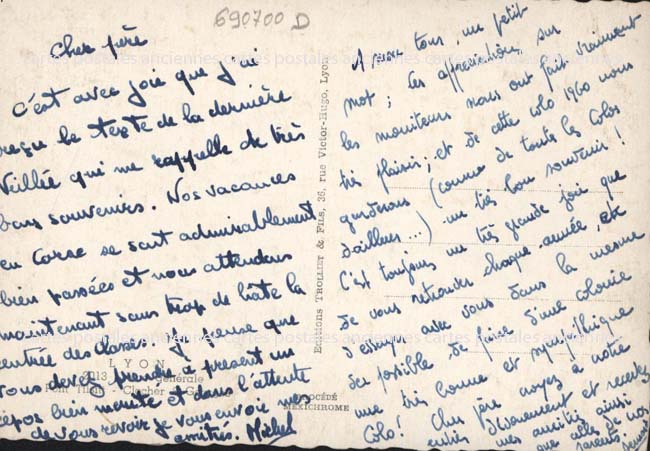 690700 D
Cher père
C'est avec joie que j'ai
reçu le texte de la dernière
Veillée qui me rappelle de très
bons souvenirs. Nos vacances
en Corse se sont admirablement
bien passées et nous attendons
maintenant sans trop de hâte la
rentrée des classes. Je pense que
vous devez prendre à présent un
repos bien mérité et dans l'attente
de vous revoir je vous envoie mes
amitiés. Michel
LYON
Générale
PROCÉDÉ
MEXICHROME
Editions TROLLIET & FILS, 36, rue Victor-Hugo, Lyon
A vous tous, un petit
mot ; les appréciations sur
les moniteurs nous ont fait vraiment
très plaisir ; et de cette colo 1960 nous
garderons (comme de toutes les Colos
d'ailleurs...) un très bon souvenir !
C'est toujours une très grande joie que
de vous retrouver chaque année, et
d'essayer avec vous dans la mesure
du possible de faire d'une colonie
une très bonne et sympathique
Colo ! Cher père croyez à notre
entier dévouement et recevez
mes amitiés ainsi
que celles de nos
parents
cartes postales anciennes cartes postales anciennes